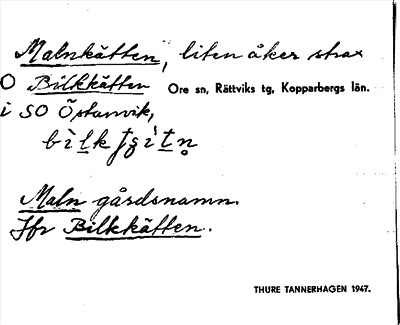 Malnkätten, liten åker strax
O Bilkkätten Ore sn, Rättviks tg, Kopparbergs län.
i SO Östanvik,
Maln gårdsnamn.
Jfr Bilkkätten.
THURE TANNERHAGEN 1947.